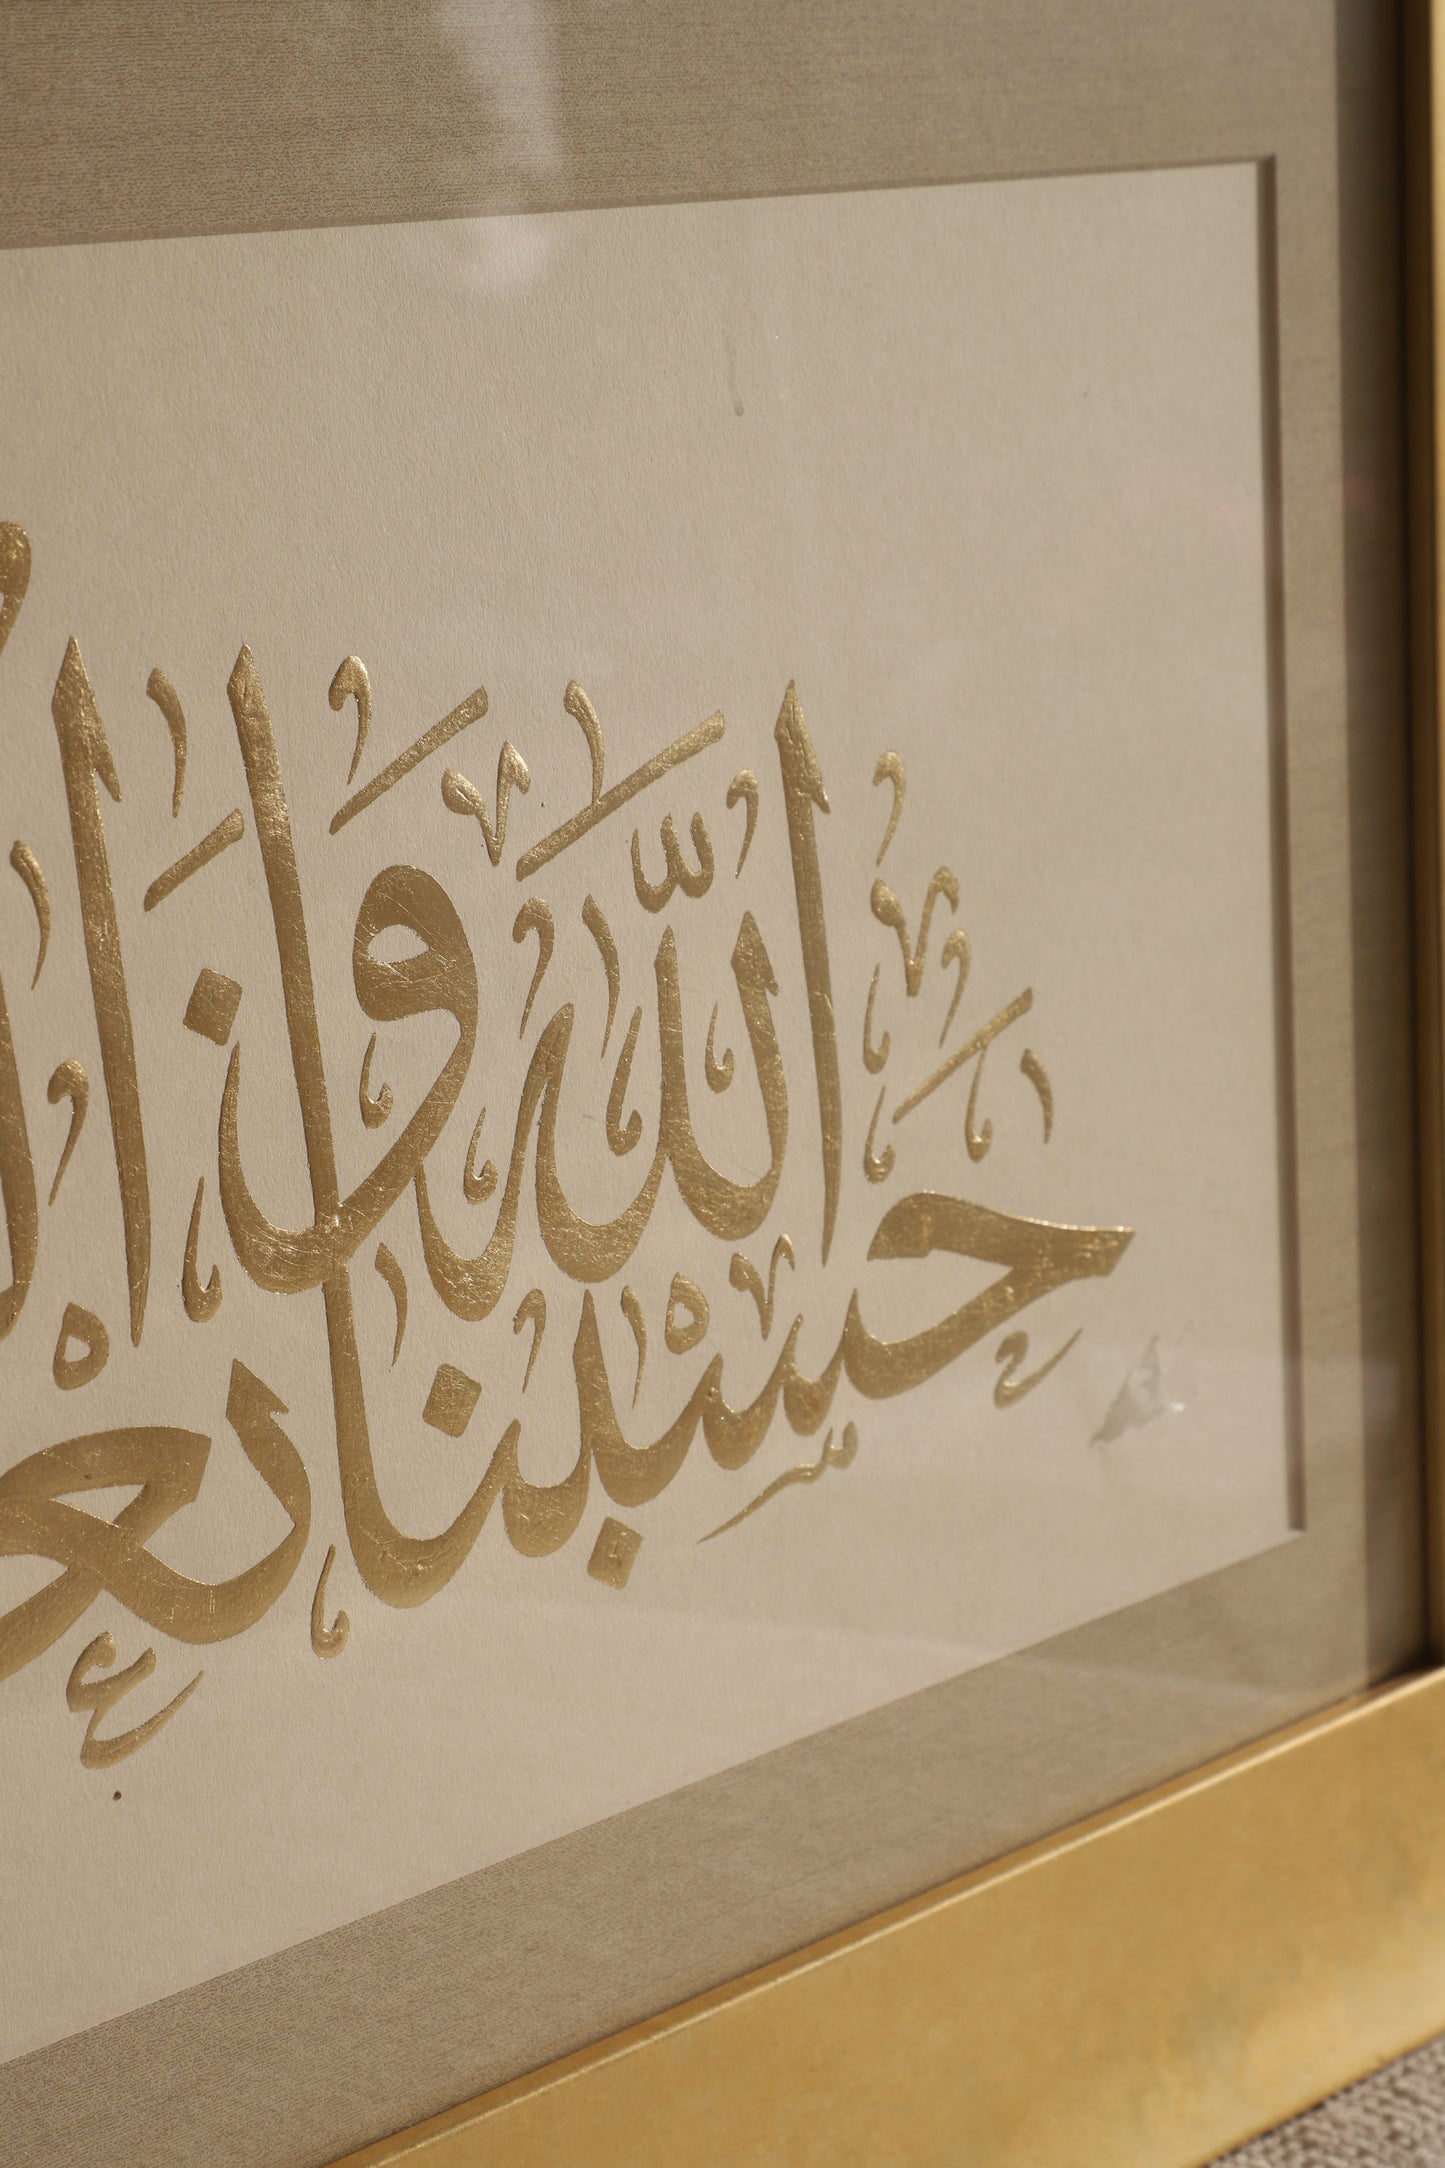 حَسْبُنَا اللَّهُ وَنِعْ